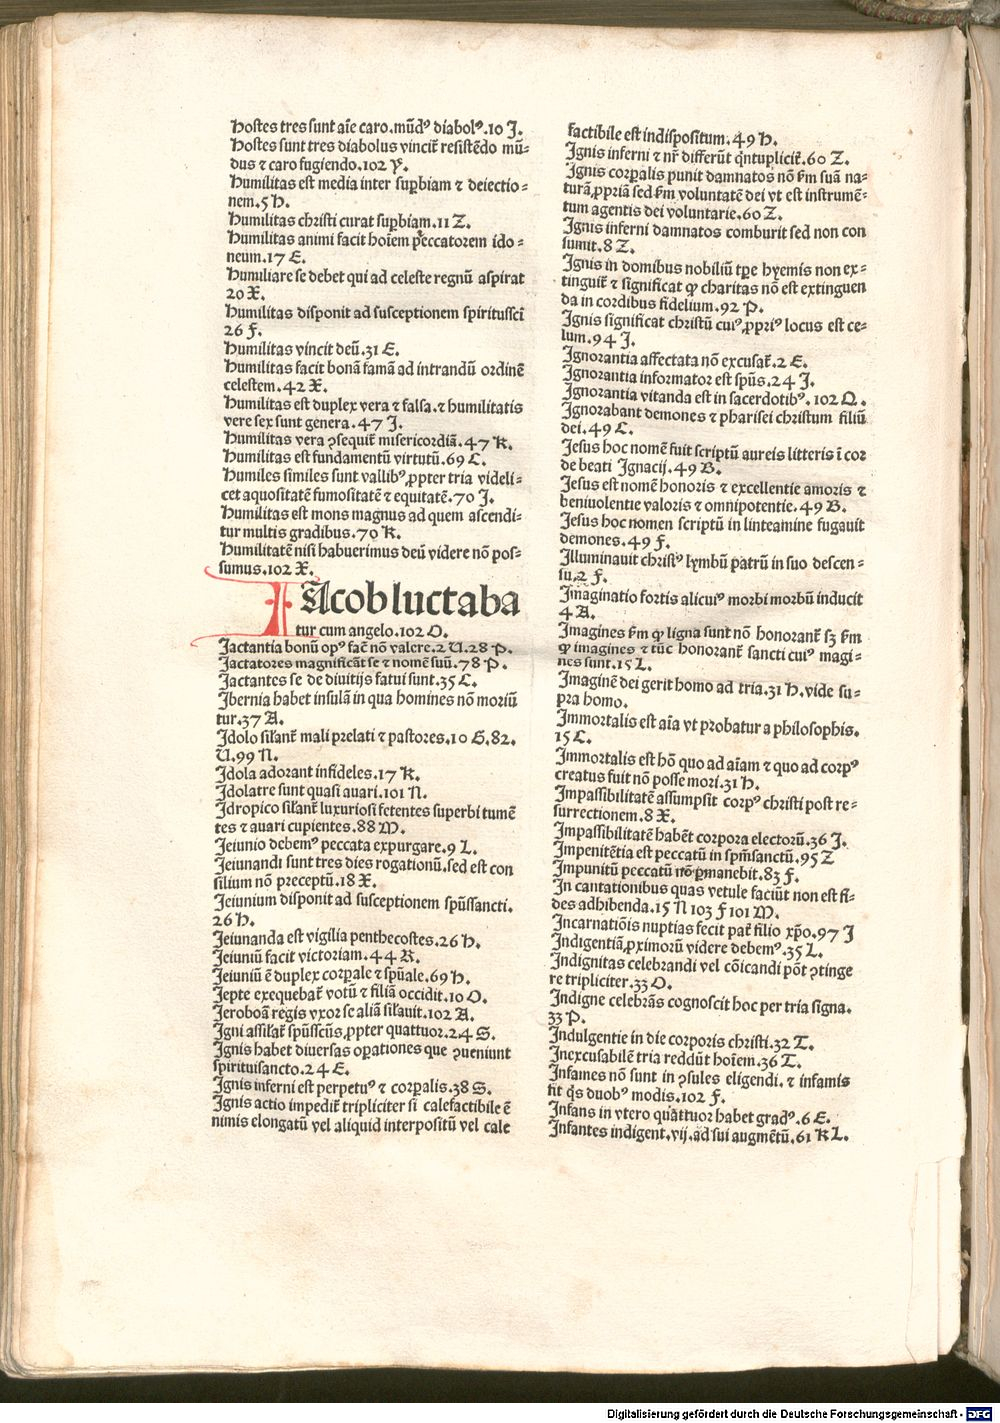 Hostes tres sunt aĩe caro.mũdꝰ diabolꝰ.10 J.
Hostes sunt tres diabolus vinciť resistẽdo mũ⸗
dus ⁊ caro fugiendo.102 P.
Humilitas est media inter suꝑbiam ⁊ deiectio⸗
nem.5 H.
Humilitas christi curat suꝑbiam.11 Z.
Humilitas animi facit hoĩem peccatorem ido⸗
neum.17 E.
Humiliare se debet qui ad celeste regnũ aspirat
20 X.
Humilitas disponit ad susceptionem spiritussctĩ
26 F.
Humilitas vincit deũ.31 E.
Humilitas facit bonã famã ad intrandũ ordinẽ
celestem.42 X.
Humilitas est duplex vera ⁊ falsa.⁊ humilitatis
vere sex sunt genera.47 J.
Humilitas vera ꝯsequiť misericordiã.47 K.
Humilitas est fundamentũ virtutũ.69 C.
Humiles similes sunt vallibꝰ ꝓpter tria videli⸗
cet aquositatẽ fumositatẽ ⁊ equitatẽ.70 J.
Humilitas est mons magnus ad quem ascendi⸗
tur multis gradibus.70 K.
Humilitatẽ nisi habuerimus deũ videre nõ pos⸗
sumus.102 X.
IAcob luctaba
tur cum angelo.102 O.
Jactantia bonũ opꝰ facẽ nõ valere.2 U.28 P.
Jactatores magnificãt se ⁊ nomẽ suũ.78 P.
Jactantes se de diuitijs fatui sunt.35 C.
Jbernia habet insulã in qua homines nõ moriũ
tur.37 A.
Jdolo silanť mali prelati ⁊ pastores.10 G.82.
U.99 N.
Jdola adorant infideles.17 K.
Jdolatre sunt quasi auari.101 N.
Jdropico silanť luxuriosi fetentes superbi tumẽ
tes ⁊ auari cupientes.88 M.
Jeiunio debemꝰ peccata expurgare.9 L.
Jeiunandi sunt tres dies rogationũ.sed est con
silium nõ preceptũ.18 X.
Jeiunium disponit ad susceptionem spũssancti.
26 H.
Jeiunanda est vigilia penthecostes.26 H.
Jeiuniũ facit victoriam.44 R.
Jeiuniũ ẽ duplex corꝑale ⁊ spũale.69 H.
Jepte exequebať votũ ⁊ filiã occidit.10 O.
Jeroboã regis vxor se aliã silauit.102 A.
Jgni assilať spũsscũs ꝓpter quattuor.24 S.
Jgnis habet diuersas oꝑationes que ꝯueniunt
spirituisancto.24 E.
Jgnis inferni est perpetuꝰ ⁊ corꝑalis.38 S.
Jgnis actio impediť tripliciter si calefactibile ẽ
nimis elongatũ vel aliquid interpositũ vel cale
factibile est indispositum.49 H.
Jgnis inferni ⁊ nř differũt qͥntupliciť.60 Z.
Jgnis corꝑalis punit damnatos nõ ẜm suã na⸗
turã ꝓpriã sed ẜm voluntatẽ dei vt est instrumẽ⸗
tum agentis dei voluntarie.60 Z.
Jgnis inferni damnatos comburit sed non con
sumit.8 Z.
Jgnis in domibus nobiliũ tꝑe hyemis non ex⸗
tinguiť ⁊ significat ꝙ charitas nõ est extinguen
da in cordibus fidelium.92 P.
Jgnis significat christũ cuiꝰ ꝓpriꝰ locus est ce⸗
lum.94 J.
Jgnorantia affectata nõ excusať.2 E.
Jgnorantia informator est spũs.24 J.
Jgnorantia vitanda est in sacerdotibꝰ.102 Q.
Jgnorabant demones ⁊ pharisei christum filiũ
dei.49 C.
Jesus hoc nomẽ fuit scriptũ aureis litteris ĩ cor
de beati Jgnacij.49 B.
Jesus est nomẽ honoris ⁊ excellentie amoris ⁊
beniuolentie valoris ⁊ omnipotentie.49 B.
Jesus hoc nomen scriptũ in linteamine fugauit
demones.49 F.
Jlluminauit christꝰ lymbũ patrũ in suo descen⸗
su.2 F.
Jmaginatio fortis alicuiꝰ morbi morbũ inducit
4 A.
Jmagines ẜm ꝙ ligna sunt nõ honoranť sꝫ ẜm
ꝙ imagines ⁊ tũc honoranť sancti cuiꝰ magi⸗
nes sunt.15 L.
Jmaginẽ dei gerit homo ad tria.31 H.vide su⸗
pra homo.
Jmmortalis est aĩa vt probatur a philosophis.
15 C.
Jmmortalis est hõ quo ad aĩam ⁊ quo ad corpꝰ
creatus fuit nõ posse mori.31 H.
Jmpassibilitatẽ assumpsit corpꝰ christi post re⸗
surrectionem.8 X.
Jmpassibilitatẽ habẽt corpora electorũ.36 J.
Jmpenitẽtia est peccatũ in spm̃sanctũ.95 Z
Jmpunitũ peccatũ nõ ꝑmanebit.83 F.
Jn cantationibus quas vetule faciũt non est fi⸗
des adhibenda.15 N 103 F 101 M.
Jncarnatiõis nuptias fecit pať filio xp̃o.97 J
Jndigentiã ꝓximorũ videre debemꝰ.35 L.
Jndignitas celebrandi vel cõicandi põt ꝯtinge
re tripliciter.33 O.
Jndigne celebrãs cognoscit hoc per tria signa.
33 P.
Jndulgentie in die corporis christi.32 T.
Jnexcusabilẽ tria reddũt hoĩem.36 T.
Jnfames nõ sunt in ꝯsules eligendi.⁊ infamis
fit qͥs duobꝰ modis.102 F.
Jnfans in vtero quattuor habet gradꝰ.6 E.
Jnfantes indigent.vij.ad sui augmẽtũ.61 K L.
Digitalisierung gefördert durch die Deutsche Forschungsgemeinschaft - DFG